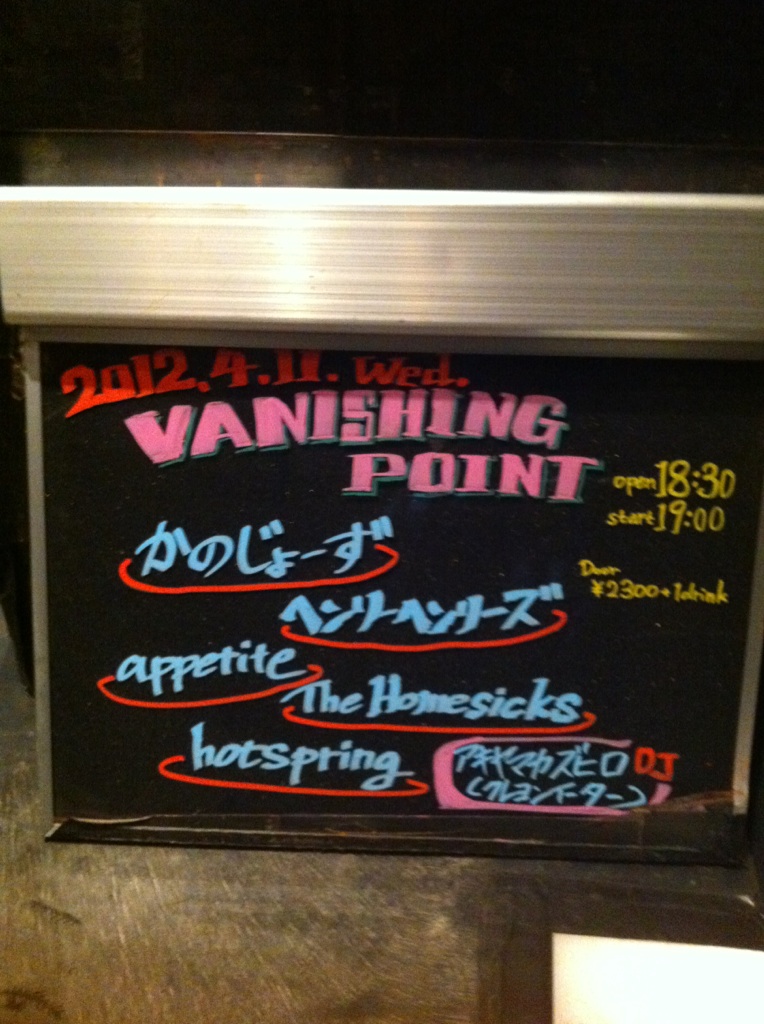 2012.4.11. Wed.
VANISHING
POINT
open 18:30
start 19:00
Door
¥2300+1drink
かのじょーず
ヘンリーヘンリーズ
appetite
The Homesicks
hotspring
アキヤマカズヒロ DJ
(クレヨンイーター)